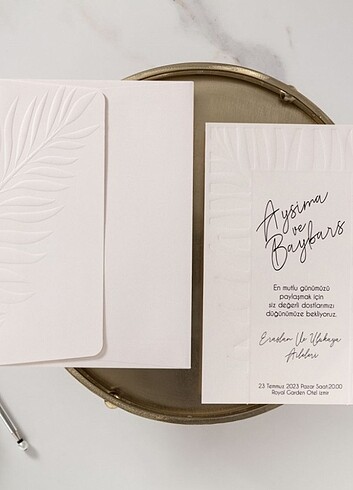 Aysima
ve
Baybars
En mutlu günümüzü
paylaşmak için
siz değerli dostlarımızı
düğünümüze bekliyoruz.
Eraslan Ve Ulukaya
Aileleri
23 Temmuz 2023 Pazar Saat:20.00
Royal Garden Otel İzmir